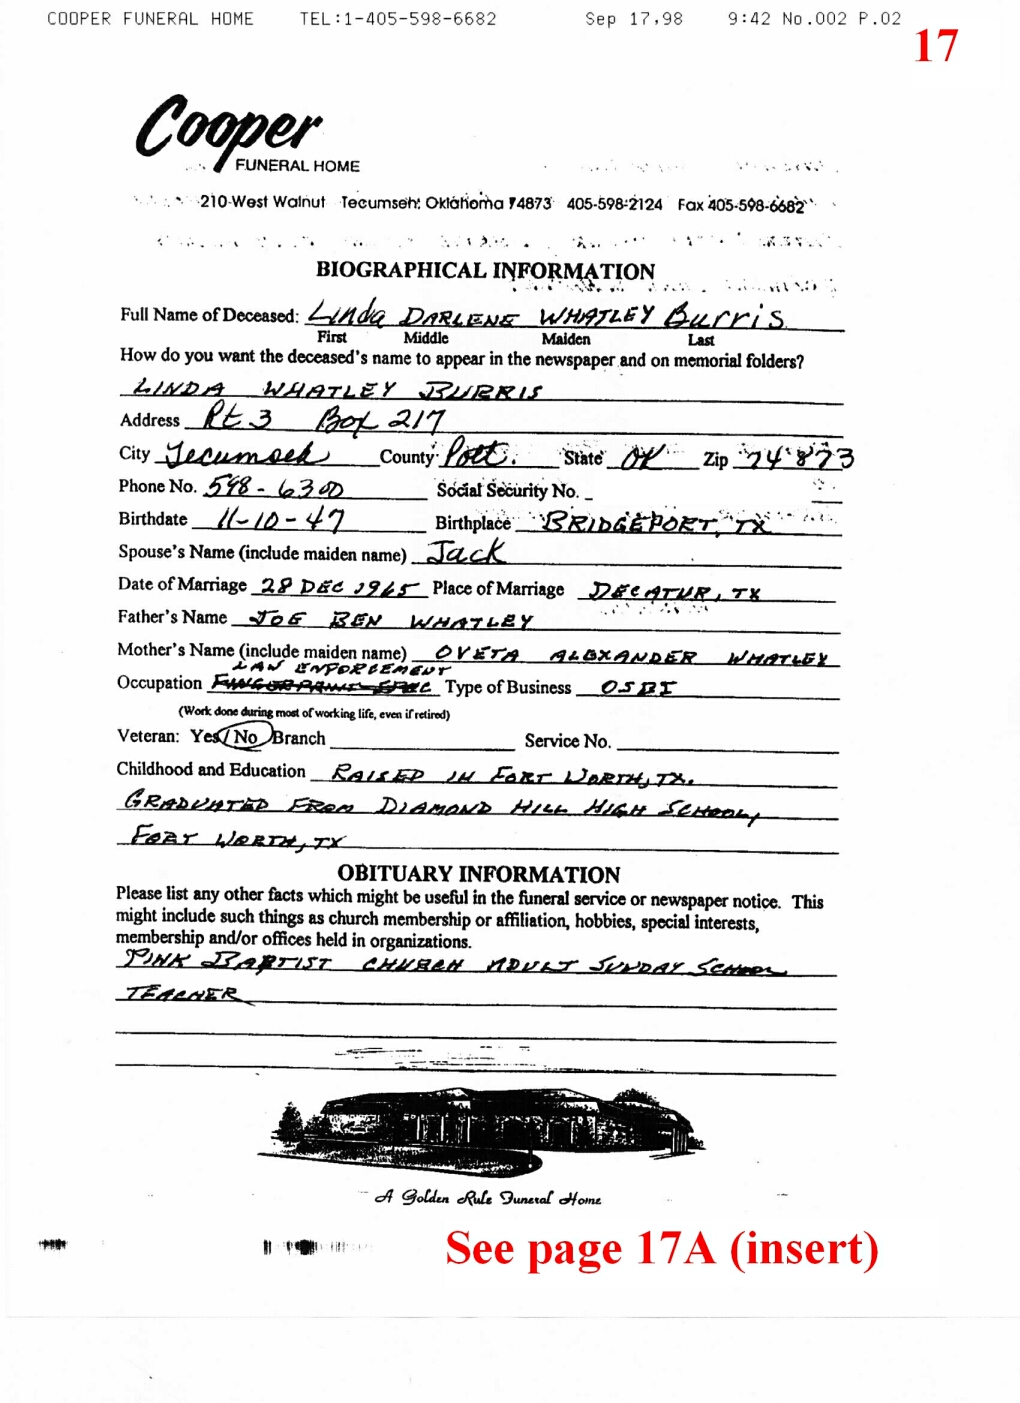 COOPER FUNERAL HOME TEL:1-405-598-6682 Sep 17,98 9:42 No.002 P.02
17
Cooper
FUNERAL HOME
210 West Walnut Tecumseh, Oklahoma 74873 405-598-2124 Fax 405-598-6682
BIOGRAPHICAL INFORMATION
Full Name of Deceased: Linda DARLENE WHATLEY Burris
First Middle Maiden Last
How do you want the deceased's name to appear in the newspaper and on memorial folders?
LINDA WHATLEY BURRIS
Address Rt 3 Box 217
City Tecumseh County Pott. State OK Zip 74873
Phone No. 598-6300 Social Security No.
Birthdate 11-10-47 Birthplace BRIDGEPORT, TX
Spouse's Name (include maiden name) Jack
Date of Marriage 28 DEC 1965 Place of Marriage DECATUR, TX
Father's Name JOE BEN WHATLEY
Mother's Name (include maiden name) OVETA ALEXANDER WHATLEY
LAW ENFORCEMENT
Occupation Type of Business OSBI
(Work done during most of working life, even if retired)
Veteran: Yes/No Branch Service No.
Childhood and Education RAISED IN FORT WORTH, TX.
GRADUATED FROM DIAMOND HILL HIGH SCHOOL,
FORT WORTH, TX
OBITUARY INFORMATION
Please list any other facts which might be useful in the funeral service or newspaper notice. This
might include such things as church membership or affiliation, hobbies, special interests,
membership and/or offices held in organizations.
PINK BAPTIST CHURCH ADULT SUNDAY SCHOOL
TEACHER
A Golden Rule Funeral Home
See page 17A (insert)